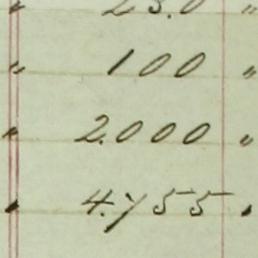 " 250 "
" 100 "
" 2.000 "
" 4.755 "